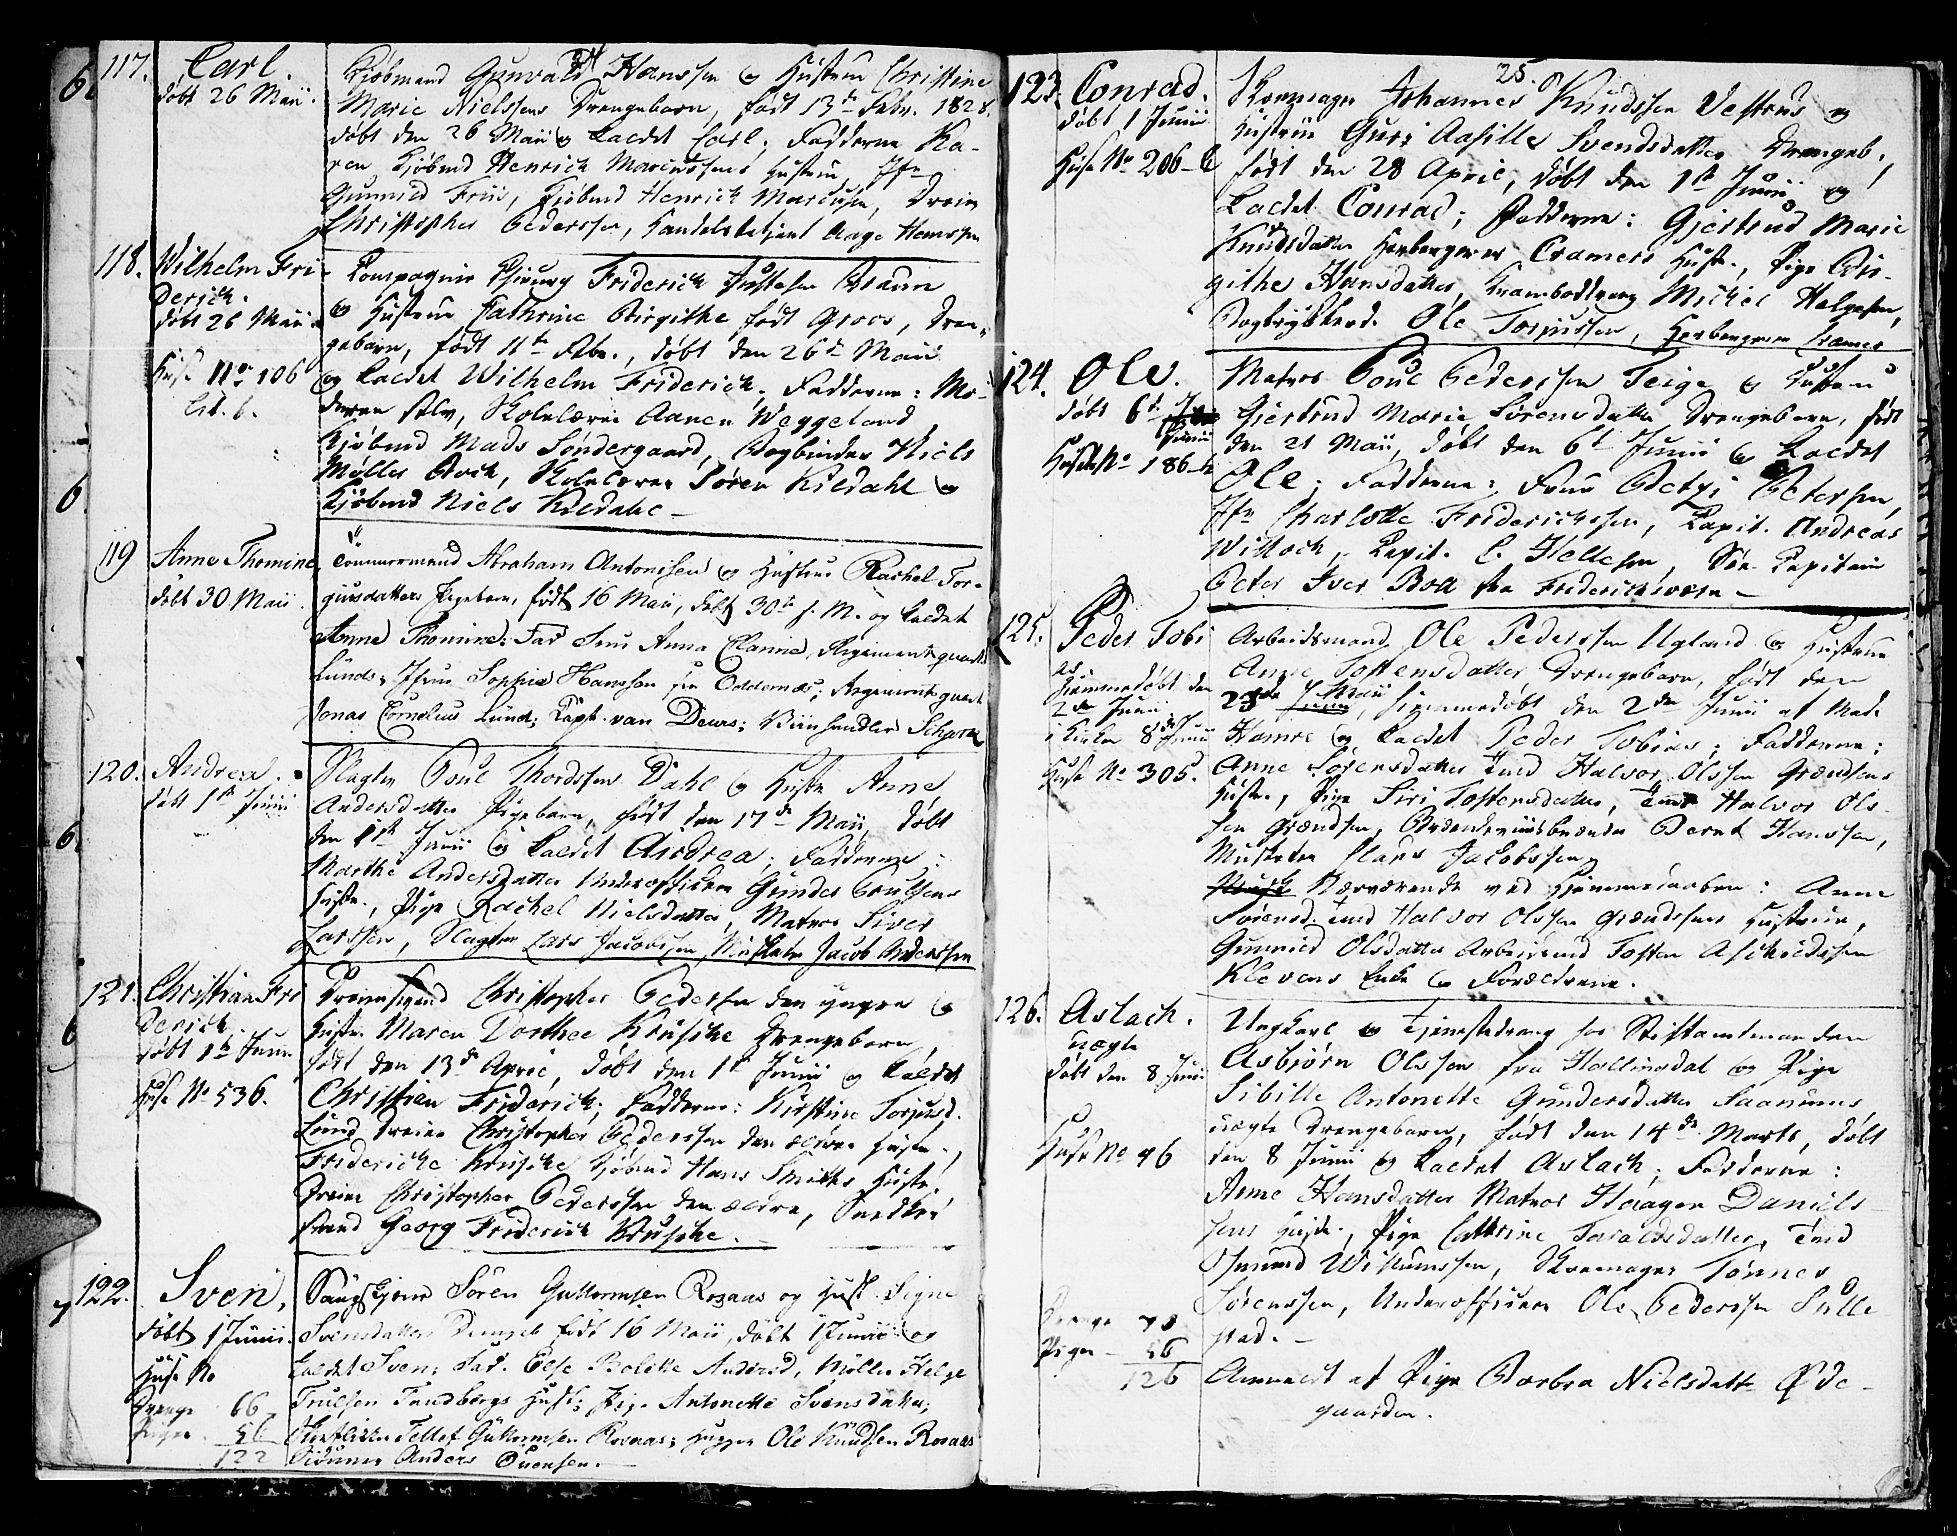 117.
Carl.
døbt 26 Maii.
Kjøbmand Gunvald Hanssen og Hustrue Christine
Marie Nielssens Drengebarn, født 13de Febr. 1828.
døbt den 26 Maii og kaldt Carl; Fadderne Ka-
ren Kjøbmd Henrich Marcussens Hustrue, Jfr
Gunnild Friis, Kjøbmd Henrich Marcussen, Dreier
Christopher Pederssen, Handelsbetjent Aage Hanssen
118.
Wilhelm Fri-
derich.
døbt 26 Maii
Huse No 106
Lit. b.
Compagnie Chirurg Friderich Justesen Braun
og Hustrue Cathrine Birgithe født Groos, Dren-
gebarn, født 11te Febr., døbt den 26de Maii
og kaldt Wilhelm Friderich. Fadderne: Mo-
deren selv, Skolelærer Aanen Weggeland
Kjøbmd Mads Søndergaard, Bogbinder Niels
Møller Bock, Skolelærer Søren Kildahl og
Kjøbmd Niels Kildahl
119
Anne Thomine
døbt 30 Maii
Tømmermand Abraham Antonisen og Hustrue Rachel Tor-
giusdatters Pigebarn, født 16 Maii, døbt 30te s. M. og kaldet
Anne Thomine: Fad Frue Anna Clanine, Regimentsqvart.
Lunds; Jfrue Sophie Hanssen fra Oddernæs; Regimentsqvart
Jonas Cornelius Lund; Capt. van Deurs; Viinhandler Schjorn
120.
Andrea.
døbt 1te Junii
Slagter Poul Thordssen Dahl og Hustr Anne
Andersdatters Pigebarn, født den 17de Maii, døbt
den 1te Junii og kaldt Andrea; Fadderne:
Marthe Andersdatter Underofficer Gunder Poulsens
Hustr., Pige Rachel Nielsdatter, Matros Siver
Larssen, Slagter Lars Jacobssen, Musketer Jacob Anderssen
121.
Christian Fri
derich.
døbt 1te Junii
Huse No 536.
Dreiersvend Christopher Pedersen den yngre og
Hustr. Maren Dorthee Krusche Drengebarn
født den 13de April, døbt den 1te Junii og kaldt
Christian Friderich; Fadderne: Kirstine Torjusd.
Lund Dreier Christopher Pederssen den ældres Hustr.,
Frideriche Krusche Kjøbmd Hans Smiths Hustr.
Dreier Christopher Pederssen den ældre, Snedker
svend Georg Friderich Krusche.
122.
Sven,
døbt 1 Junii.
Huse No
Drenge 66
Piger. 56
122
Søren Guttormsen Rosaas og Hust. Signe
Svensdatters Drengeb født 16 Maii, døbt 1 Junii og
kaldet Sven; Fad. Else Bolette Andersd, Møller Helge
Truelsen Tandbergs Hustr; Pige Antonette Svensdatter;
Tellef Guttormsen Rosaas; Hugger Ole Knudsen Rosaas
Anders Svensen.
25.
123.
Conrad.
døbt 1 Junii
Huse No 206-b
Skomager Johannes Knudssen Vestnes og
Hustrue Guri Aasille Svendsdatter Drengeb.,
født den 28 April, døbt den 1te Junii og
kaldet Conrad; Fadderne: Gjertrud Marie
Knudsdatter Herbergerer Cramers Hustr., Pige Bir-
githe Hansdatter, Krambodsvend Michel Halgesen,
Ole Torjussen, Herbergerer Cramer
124.
Ole.
døbt 6te
Junii
Huse No 186-b
Matros Poul Pederssen Teige og Hustrue
Gjertrud Marie Sørensdatter Drengebarn, født
den 21 Maii, døbt den 6te Junii og kaldt
Ole; Fadderne: Frue Betzi Petersen,
Jfr Charlotte Friderichssen, Capit. Andreas
Willoch, Capit. C. Kellesen, Søe Capitain
Peter Iver Boll fra Friderichsværn
125.
Peder Tobi
as.
Hjemmedøbt den
2de Junii
i Kirken 8de Junii
Huse No 305.
Arbeidsmand Ole Pederssen Ugland og Hustrue
Anne Tostensdatter Drengebarn, født den
25de Maii, hjemmedøbt den 2den Junii af Mad.
Homre og kaldet Peder Tobias; Fadderne:
Anne Sørensdatter Tmd Halvor Olssen Grændsens
Hustr., Pige Siri Tostensdatter, Tmd Halvor Ols
sen Grændsen, Brændeviinsbrænder Bernt Hanssen,
Musketer Hans Jacobssen.
Nærværende ved Hjemmedaaben: Anne
Sørensd. Tmd Halvor Olssen Grændssens Hustrue,
Gunnild Olsdatter Arbeidsmd Tosten Aschildssen
Klevens Enke og Forældrene.
126.
Aslach.
uægte
døbt den 8 Junii
Huse No 96
Drenge 70
Piger - 56
126
Ungkarl og Tjenestedreng hos Stiftamtmanden
Asbjørn Olssen fra Hallingdal og Pige
Sibille Antonette Gundersdatter Faanums
uægte Drengebarn, født den 14de Marts, døbt
den 8 Junii og kaldet Aslach; Fadderne:
Anne Hansdatter Matros Haagen Daniels
sens Hustr., Pige Cathrine Taraldsdatter, Tmd
Osmund Willumssen, Skomager Tønnes
Sørenssen, Underofficeer Ole Pederssen Sølle
stad.
Anmeldt af Pige Barbra Nielsdatter Øde-
gaarden.